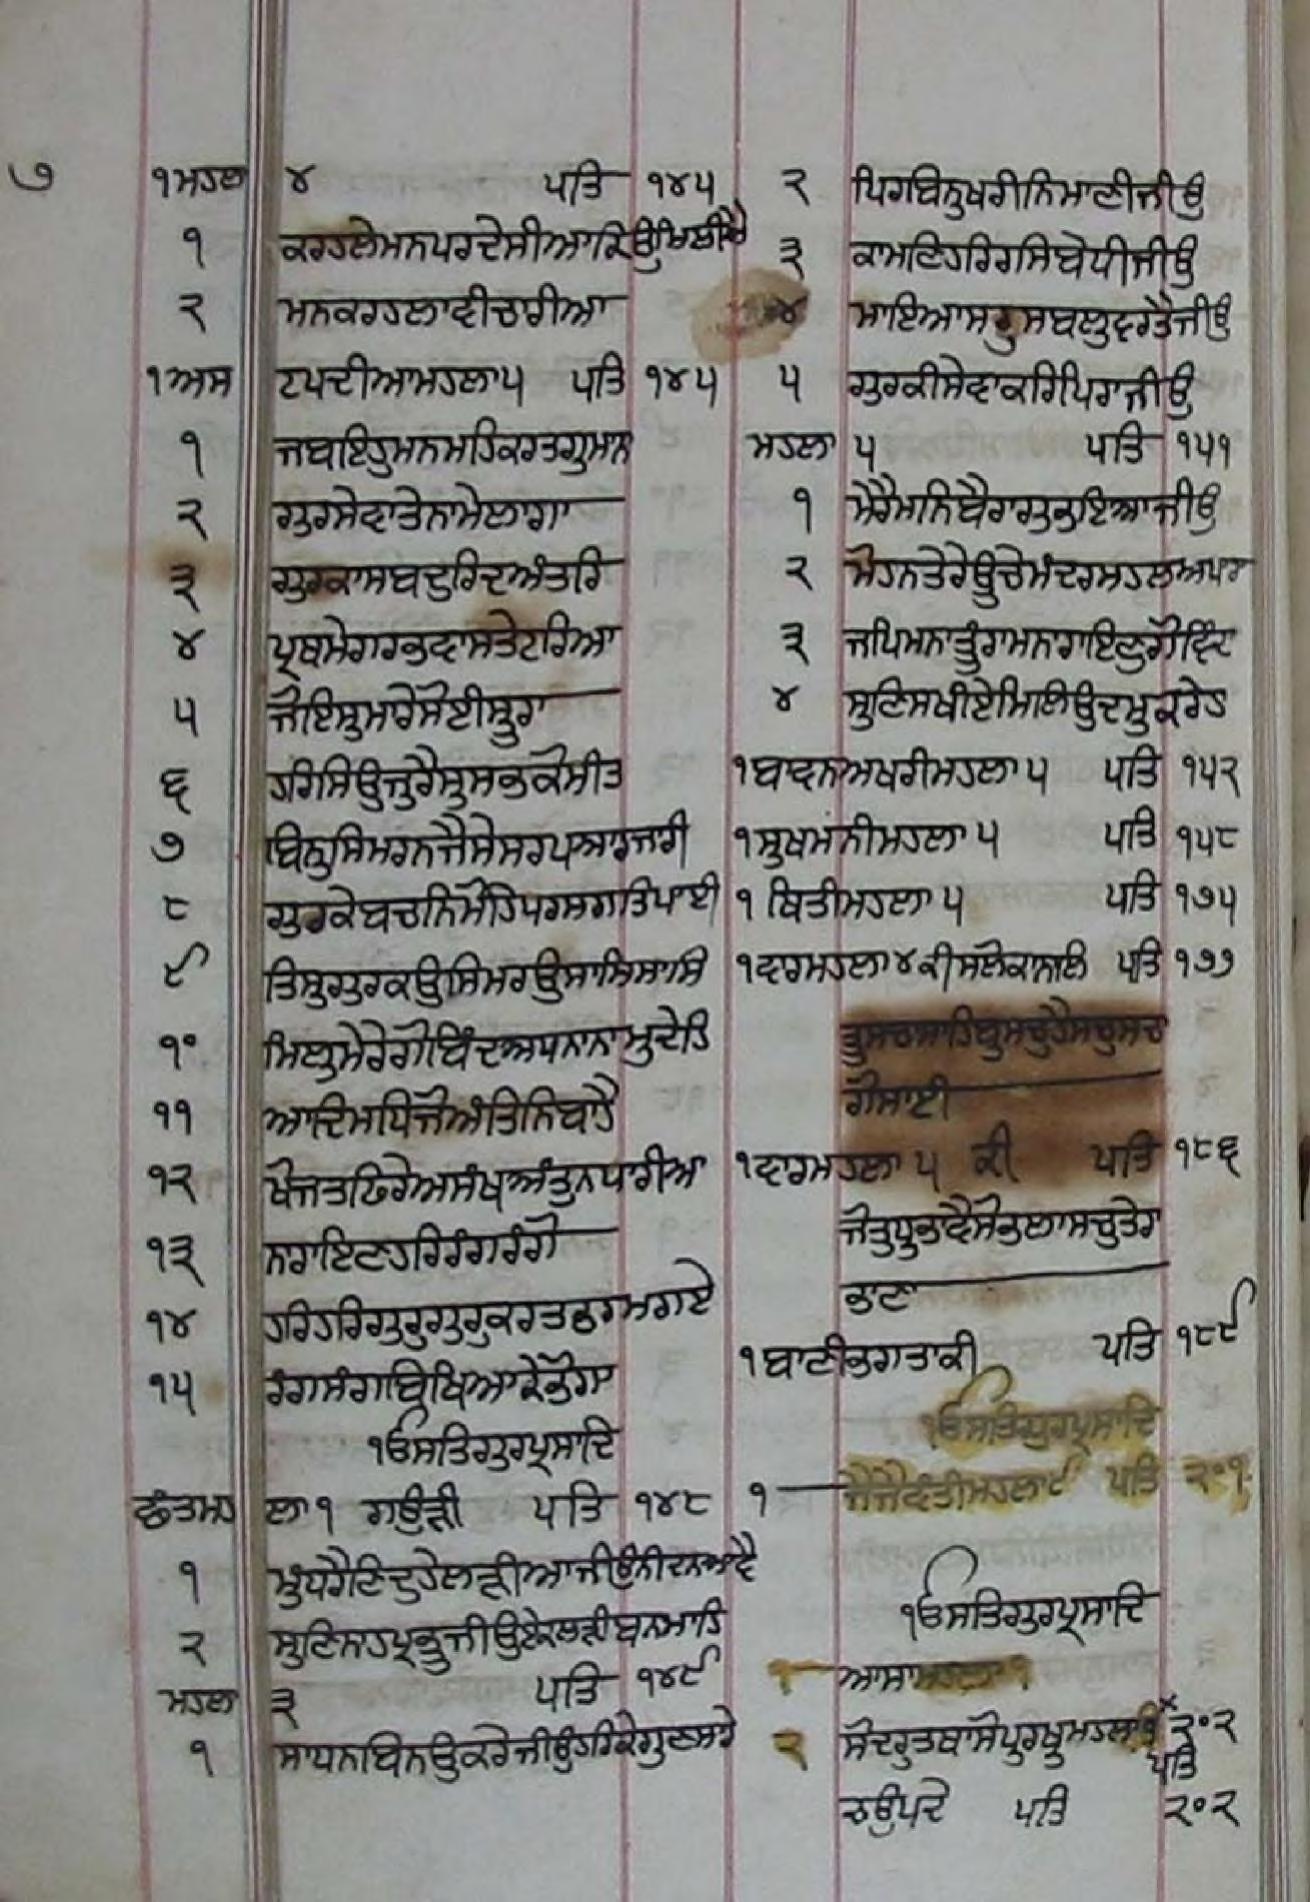 ੭
੧ ਮਹਲਾ ੪ ਪਤਿ ੧੪੫
੧ ਕਰਹਲੇਮਨਪਰਦੇਸੀਆਕਿਉਮਿਲੀਐ
੨ ਮਨਕਰਹਲਾਵੀਚਾਰੀਆ
੧ਅਸਟਪਦੀਆਮਹਲਾ੫ ਪਤਿ ੧੪੫
੧ ਜਬਇਹੁਮਨਮਹਿਕਰਤਗੁਮਾਨ
੨ ਗੁਰਸੇਵਾਤੇਨਾਮੇਲਾਗਾ
੩ ਗੁਰਕਾਸਬਦੁਰਿਦਅੰਤਰਿ
੪ ਪ੍ਰਥਮੇਗਰਭਵਾਸਤੇਟਰਿਆ
੫ ਜੋਇਸੁਮਰੇਸੋਈਸੂਰਾ
੬ ਹਰਿਸਿਉਜੁਰੈਸੁਸਭਕੋਮੀਤ
੭ ਬਿਨੁਸਿਮਰਨਜੈਸੇਸਰਪਆਰਜਾਰੀ
੮ ਗੁਰਕੇਬਚਨਿਮੋਹਿਪਰਮਗਤਿਪਾਈ
੯ ਤਿਸੁਗੁਰਕਉਸਿਮਰਉਸਾਸਿਸਾਸਿ
੧੦ ਮਿਲੁਮੇਰੇਗੋਬਿੰਦਅਪਨਾਨਾਮੁਦੇਹਿ
੧੧ ਆਦਿਮਧਿਜੋਅੰਤਿਨਿਬਾਹੈ
੧੨ ਖੋਜਤਫਿਰੇਅਸੰਖਅੰਤੁਨਪਾਰੀਆ
੧੩ ਨਰਾਇਣਹਰਿਰੰਗਰੰਗੋ
੧੪ ਹਰਿਹਰਿਗੁਰੁਗੁਰੁਕਰਤਭਰਮਗਏ
੧੫ ਰੰਗਸੰਗਬਿਖਿਆਕੇਭੋਗਾ
੧ਓਸਤਿਗੁਰਪ੍ਰਸਾਦਿ
ਛੰਤਮਹਲਾ੧ ਗਉੜੀ ਪਤਿ ੧੪੮
੧ ਮੁੰਧਰੈਣਿਦੁਹੇਲੜੀਆਜੀਉਨੀਦਨਆਵੈ
੨ ਸੁਣਿਨਾਹਪ੍ਰਭੂਜੀਉਏਕਲੜੀਬਨਮਾਹਿ
ਮਹਲਾ ੩ ਪਤਿ ੧੪੯
੧ ਸਾਧਨਬਿਨਉਕਰੇਜੀਉਹਰਿਕੇਗੁਣਸਾਰੇ
੨ ਪਿਰਬਿਨੁਖਰੀਨਿਮਾਣੀਜੀਉ
੩ ਕਾਮਣਿਹਰਿਰਸਿਬੇਧੀਜੀਉ
੪ ਮਾਇਆਸਰੁਸਬਲੁਵਰਤੈਜੀਉ
੫ ਗੁਰਕੀਸੇਵਾਕਰਿਪਿਰਾਜੀਉ
ਮਹਲਾ ੫ ਪਤਿ ੧੫੧
੧ ਮੇਰੈਮਨਿਬੈਰਾਗੁਭਇਆਜੀਉ
੨ ਮੋਹਨਤੇਰੇਊਚੇਮੰਦਰਮਹਲਅਪਾਰਾ
੩ ਜਪਿਮਨਾਤੂੰਰਾਮਨਰਾਇਣੁਗੋਵਿੰਦਾ
੪ ਸੁਣਿਸਖੀਏਮਿਲਿਉਦਮੁਕਰੇਹਾ
੧ਬਾਵਨਅਖਰੀਮਹਲਾ੫ ਪਤਿ ੧੫੨
੧ਸੁਖਮਨੀਮਹਲਾ੫ ਪਤਿ ੧੫੮
੧ ਥਿਤੀਮਹਲਾ੫ ਪਤਿ ੧੭੫
੧ਵਾਰਮਹਲਾ੪ਕੀਸਲੋਕਾਨਾਲਿ ਪਤਿ ੧੭੭
ਤੂਸਚਾਸਾਹਿਬੁਸਚੁਹੈਸਚੁਸਚਾ
ਗੋਸਾਈ
੧ਵਾਰਮਹਲਾ੫ ਕੀ ਪਤਿ ੧੮੬
ਜੋਤੁਧੁਭਾਵੈਸੋਭਲਾਸਚੁਤੇਰਾ
ਭਾਣਾ
੧ਬਾਣੀਭਗਤਾਕੀ ਪਤਿ ੧੮੯
੧ਓਸਤਿਗੁਰਪ੍ਰਸਾਦਿ
੧ ਜੈਜੈਵੰਤੀਮਹਲਾ੯ ਪਤਿ ੨੦੧
੧ਓਸਤਿਗੁਰਪ੍ਰਸਾਦਿ
੧ ਆਸਾਮਹਲਾ੧
੨ ਸੋਦਰੁਤਥਾਸੋਪੁਰਖੁਮਹਲਾ ੨੦੨
ਪਤਿ
ਚਉਪਦੇ ਪਤਿ ੨੦੨